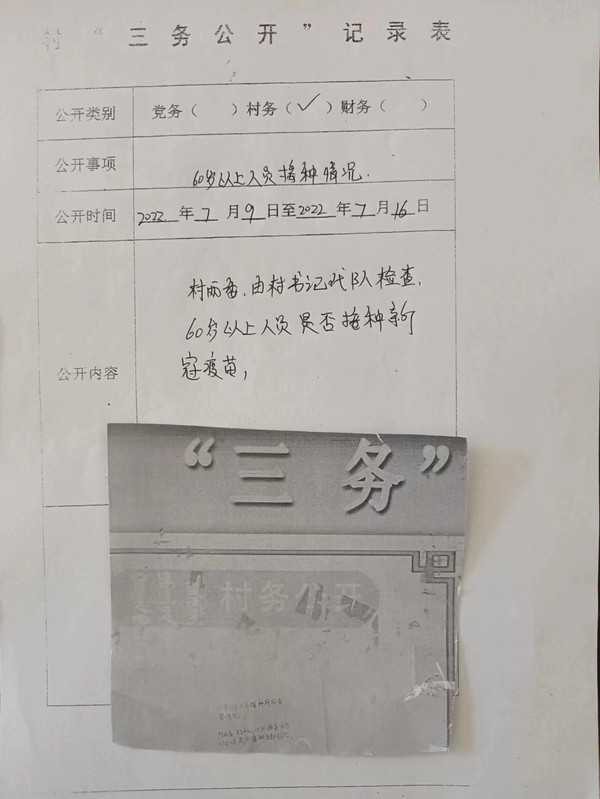 “三务公开”记录表
公开类别 党务（ ）村务（✓）财务（ ）
公开事项 60岁以上人员接种情况.
公开时间 2022 年 7 月 9 日至 2022 年 7 月 16 日
公开内容
村两委.由村书记代队检查.
60岁以上人员是否接种新
冠疫苗,
“三务”
村务公开